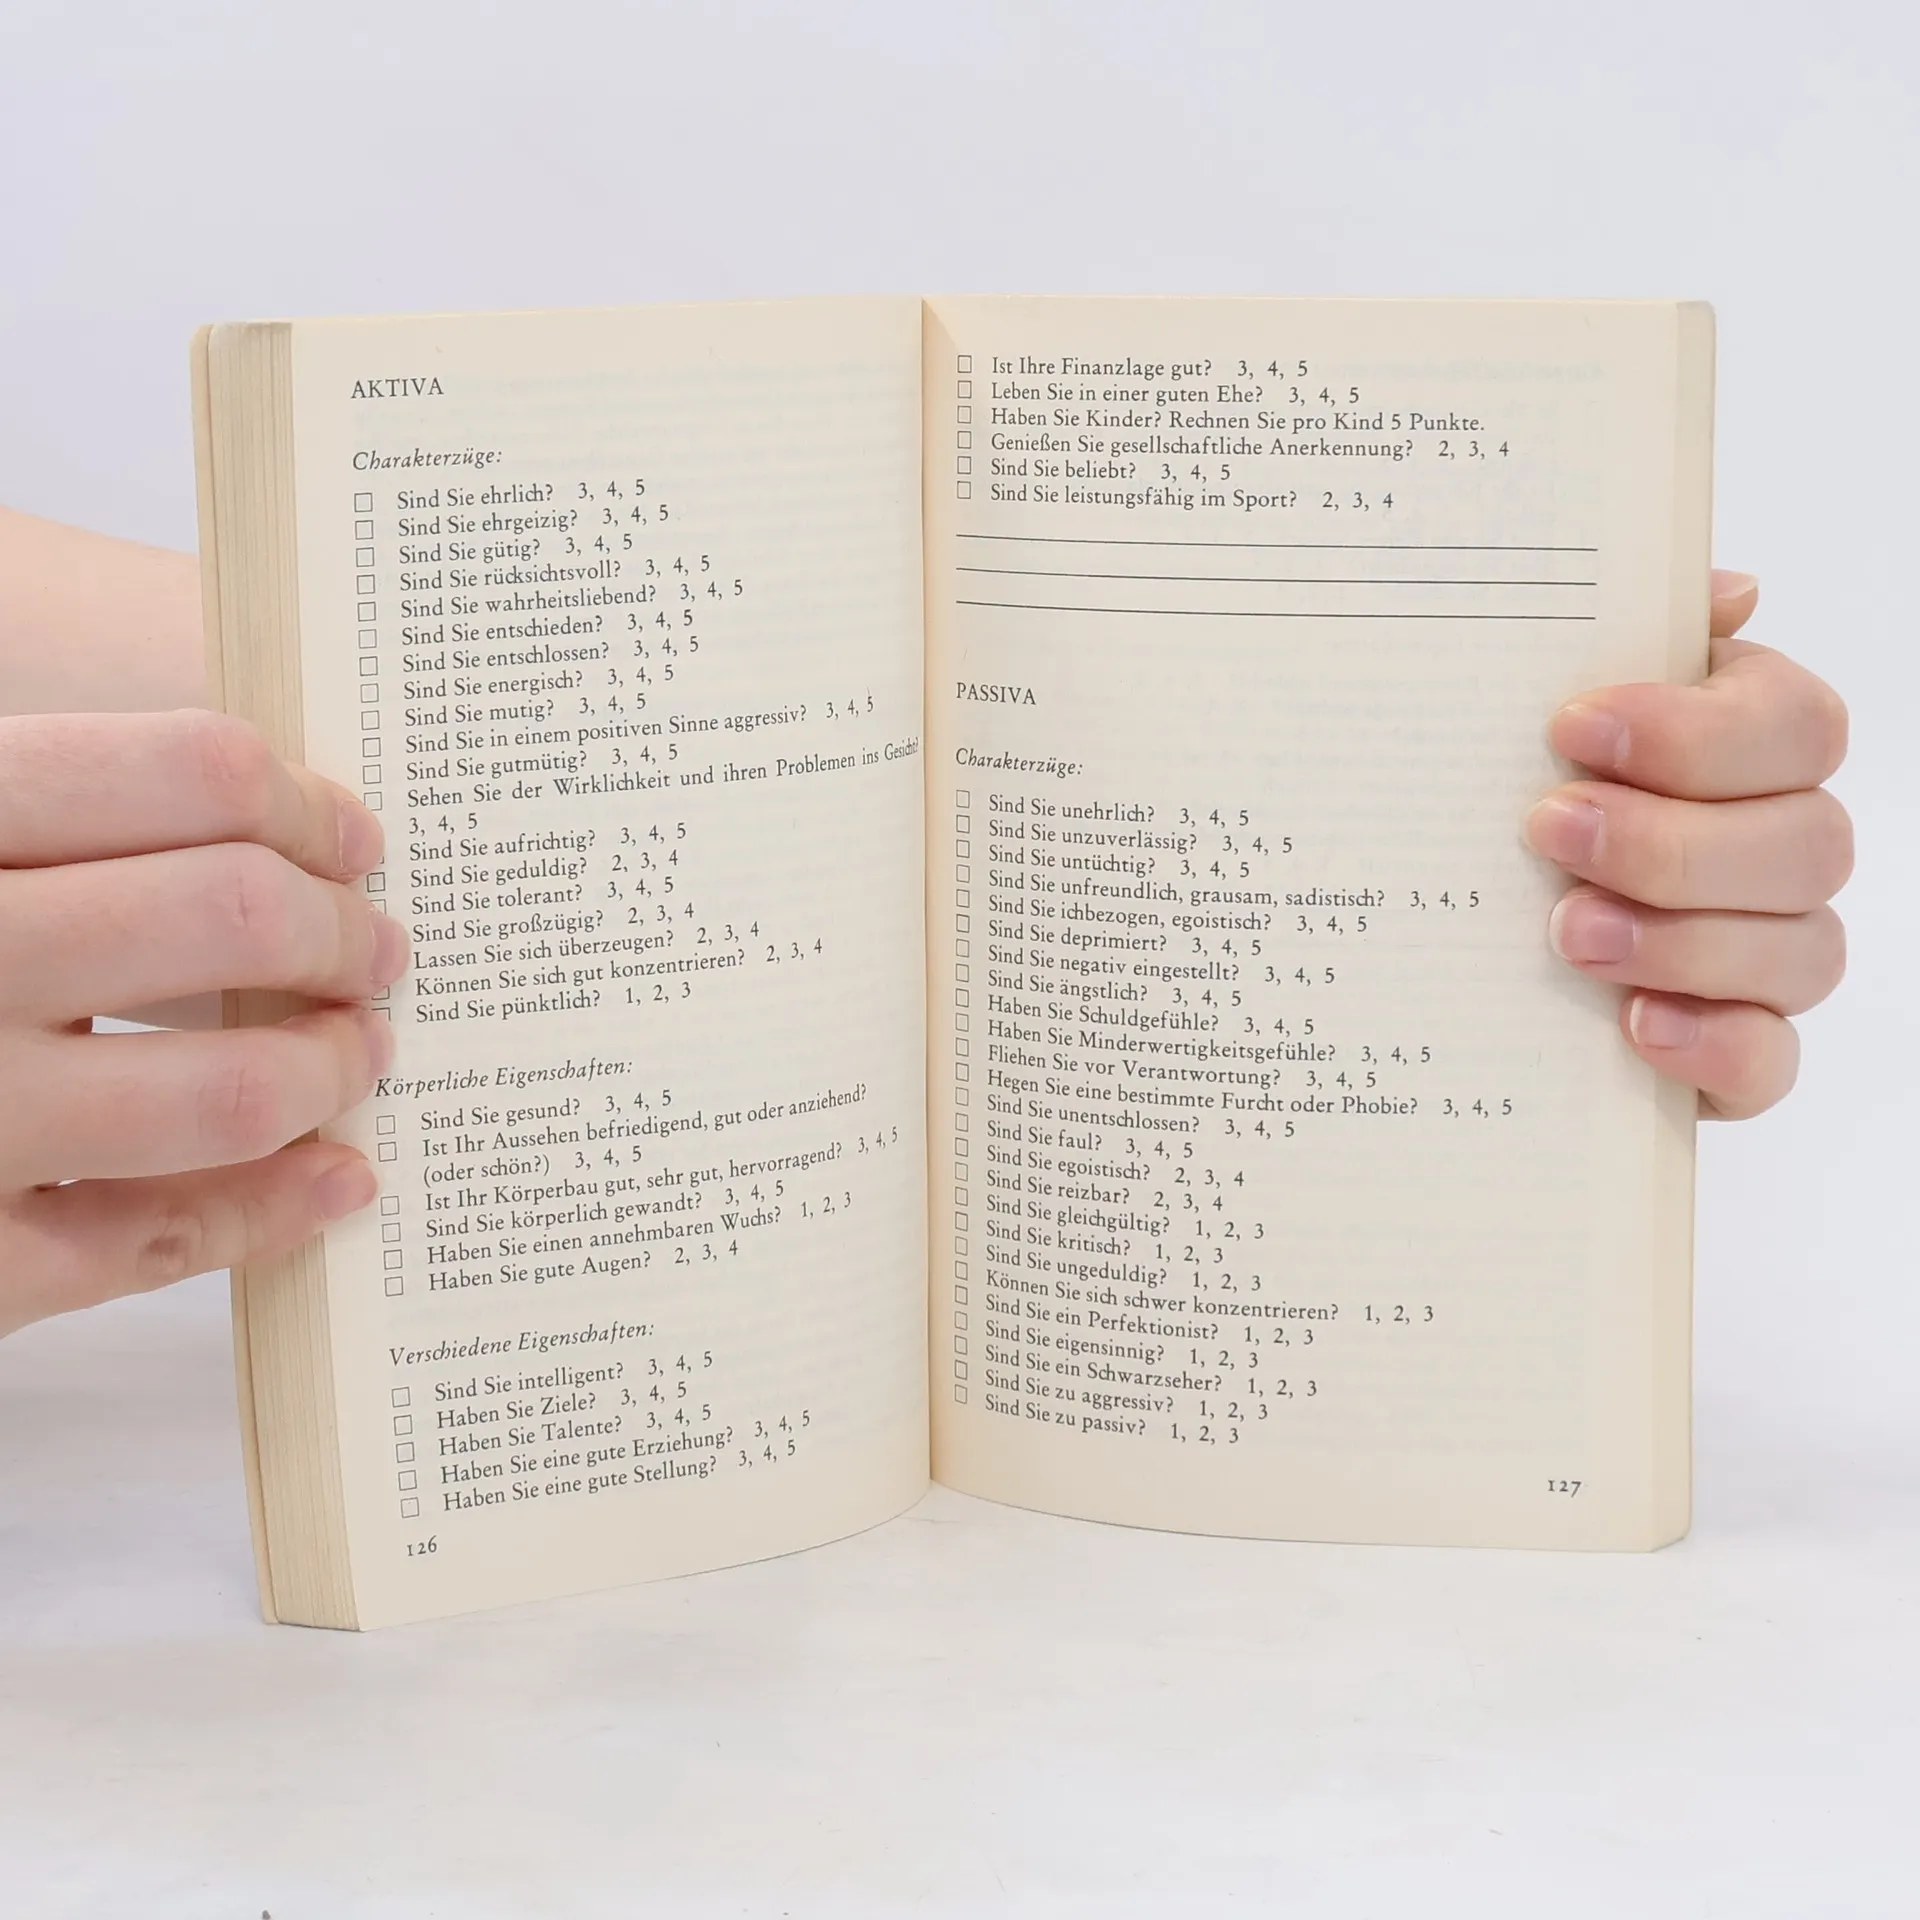 AKTIVA
Charakterzüge:
Sind Sie ehrlich? 3, 4, 5
Sind Sie ehrgeizig? 3, 4, 5
Sind Sie gütig? 3, 4, 5
Sind Sie rücksichtsvoll? 3, 4, 5
Sind Sie wahrheitsliebend? 3, 4, 5
Sind Sie entschieden? 3, 4, 5
Sind Sie entschlossen? 3, 4, 5
Sind Sie energisch? 3, 4, 5
Sind Sie mutig? 3, 4, 5
Sind Sie in einem positiven Sinne aggressiv? 3, 4, 5
Sind Sie gutmütig? 3, 4, 5
Sehen Sie der Wirklichkeit und ihren Problemen ins Gesicht?
3, 4, 5
Sind Sie aufrichtig? 3, 4, 5
Sind Sie geduldig? 2, 3, 4
Sind Sie tolerant? 3, 4, 5
Sind Sie großzügig? 2, 3, 4
Lassen Sie sich überzeugen? 2, 3, 4
Können Sie sich gut konzentrieren? 2, 3, 4
Sind Sie pünktlich? 1, 2, 3
Körperliche Eigenschaften:
Sind Sie gesund? 3, 4, 5
Ist Ihr Aussehen befriedigend, gut oder anziehend?
(oder schön?) 3, 4, 5
Ist Ihr Körperbau gut, sehr gut, hervorragend? 3, 4, 5
Sind Sie körperlich gewandt? 3, 4, 5
Haben Sie einen annehmbaren Wuchs? 1, 2, 3
Haben Sie gute Augen? 2, 3, 4
Verschiedene Eigenschaften:
Sind Sie intelligent? 3, 4, 5
Haben Sie Ziele? 3, 4, 5
Haben Sie Talente? 3, 4, 5
Haben Sie eine gute Erziehung? 3, 4, 5
Haben Sie eine gute Stellung? 3, 4, 5
126
Ist Ihre Finanzlage gut? 3, 4, 5
Leben Sie in einer guten Ehe? 3, 4, 5
Haben Sie Kinder? Rechnen Sie pro Kind 5 Punkte.
Genießen Sie gesellschaftliche Anerkennung? 2, 3, 4
Sind Sie beliebt? 3, 4, 5
Sind Sie leistungsfähig im Sport? 2, 3, 4
PASSIVA
Charakterzüge:
Sind Sie unehrlich? 3, 4, 5
Sind Sie unzuverlässig? 3, 4, 5
Sind Sie untüchtig? 3, 4, 5
Sind Sie unfreundlich, grausam, sadistisch? 3, 4, 5
Sind Sie ichbezogen, egoistisch? 3, 4, 5
Sind Sie deprimiert? 3, 4, 5
Sind Sie negativ eingestellt? 3, 4, 5
Sind Sie ängstlich? 3, 4, 5
Haben Sie Schuldgefühle? 3, 4, 5
Haben Sie Minderwertigkeitsgefühle? 3, 4, 5
Fliehen Sie vor Verantwortung? 3, 4, 5
Hegen Sie eine bestimmte Furcht oder Phobie? 3, 4, 5
Sind Sie unentschlossen? 3, 4, 5
Sind Sie faul? 3, 4, 5
Sind Sie egoistisch? 2, 3, 4
Sind Sie reizbar? 2, 3, 4
Sind Sie gleichgültig? 1, 2, 3
Sind Sie kritisch? 1, 2, 3
Sind Sie ungeduldig? 1, 2, 3
Können Sie sich schwer konzentrieren? 1, 2, 3
Sind Sie ein Perfektionist? 1, 2, 3
Sind Sie eigensinnig? 1, 2, 3
Sind Sie ein Schwarzseher? 1, 2, 3
Sind Sie zu aggressiv? 1, 2, 3
Sind Sie zu passiv? 1, 2, 3
127